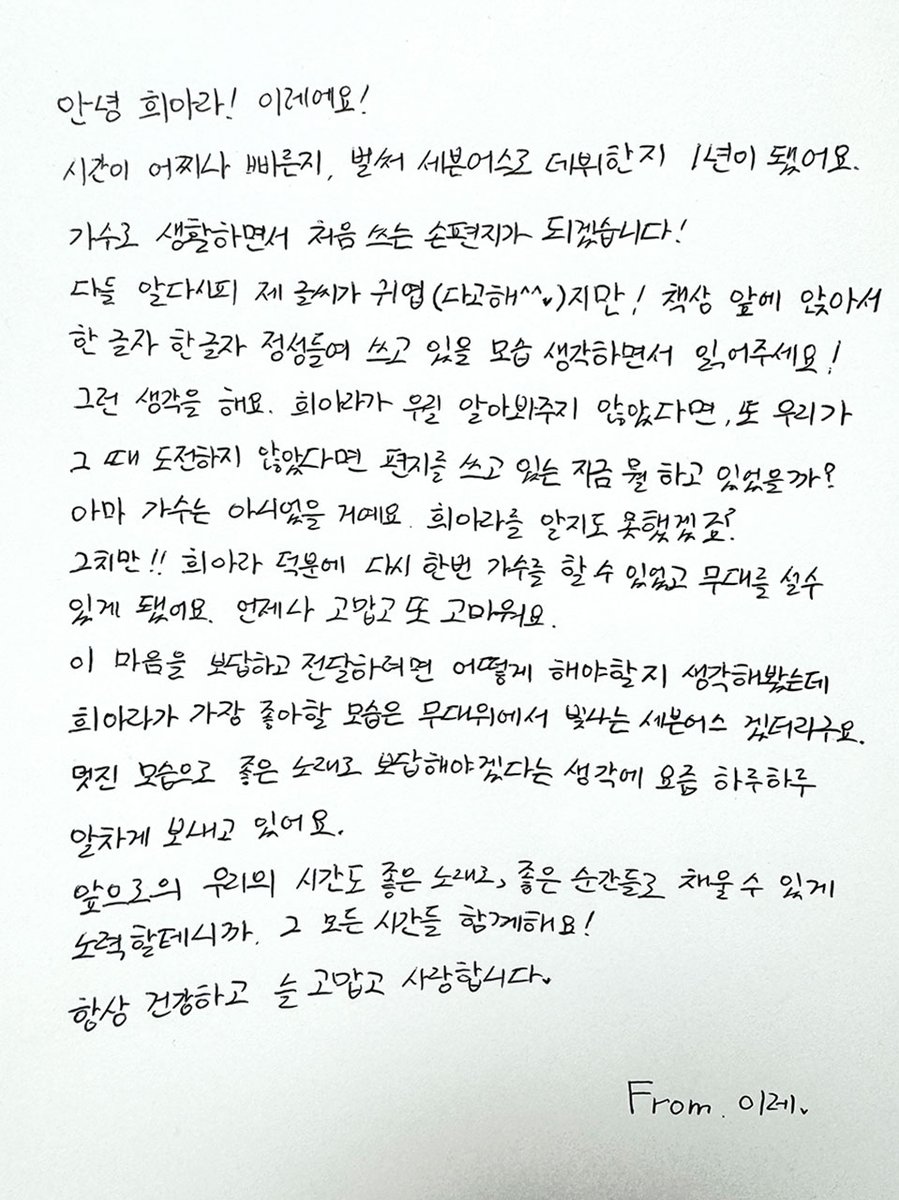 안녕 희아라! 이레에요!
시간이 어찌나 빠른지, 벌써 세븐어스로 데뷔한지 1년이 됐어요.
가수로 생활하면서 처음 쓰는 손편지가 되겠습니다!
다들 알다시피 제 글씨가 귀엽(다고해^^♥)지만! 책상 앞에 앉아서
한 글자 한글자 정성들여 쓰고 있을 모습 생각하면서 읽어주세요!
그런 생각을 해요. 희아라가 우릴 알아봐주지 않았다면, 또 우리가
그 때 도전하지 않았다면 편지를 쓰고 있는 지금 뭘 하고 있었을까?
아마 가수는 아니었을 거예요. 희아라를 알지도 못했겠죠?
그치만!! 희아라 덕분에 다시 한번 가수를 할 수 있었고 무대를 설수
있게 됐어요. 언제나 고맙고 또 고마워요.
이 마음을 보답하고 전달하려면 어떻게 해야할지 생각해봤는데
희아라가 가장 좋아할 모습은 무대위에서 빛나는 세븐어스 겠더라구요.
멋진 모습으로 좋은 노래로 보답해야겠다는 생각에 요즘 하루하루
알차게 보내고 있어요.
앞으로의 우리의 시간도 좋은 노래로, 좋은 순간들로 채울 수 있게
노력할테니까. 그 모든 시간들 함께해요!
항상 건강하고 늘 고맙고 사랑합니다♥
From. 이레♥